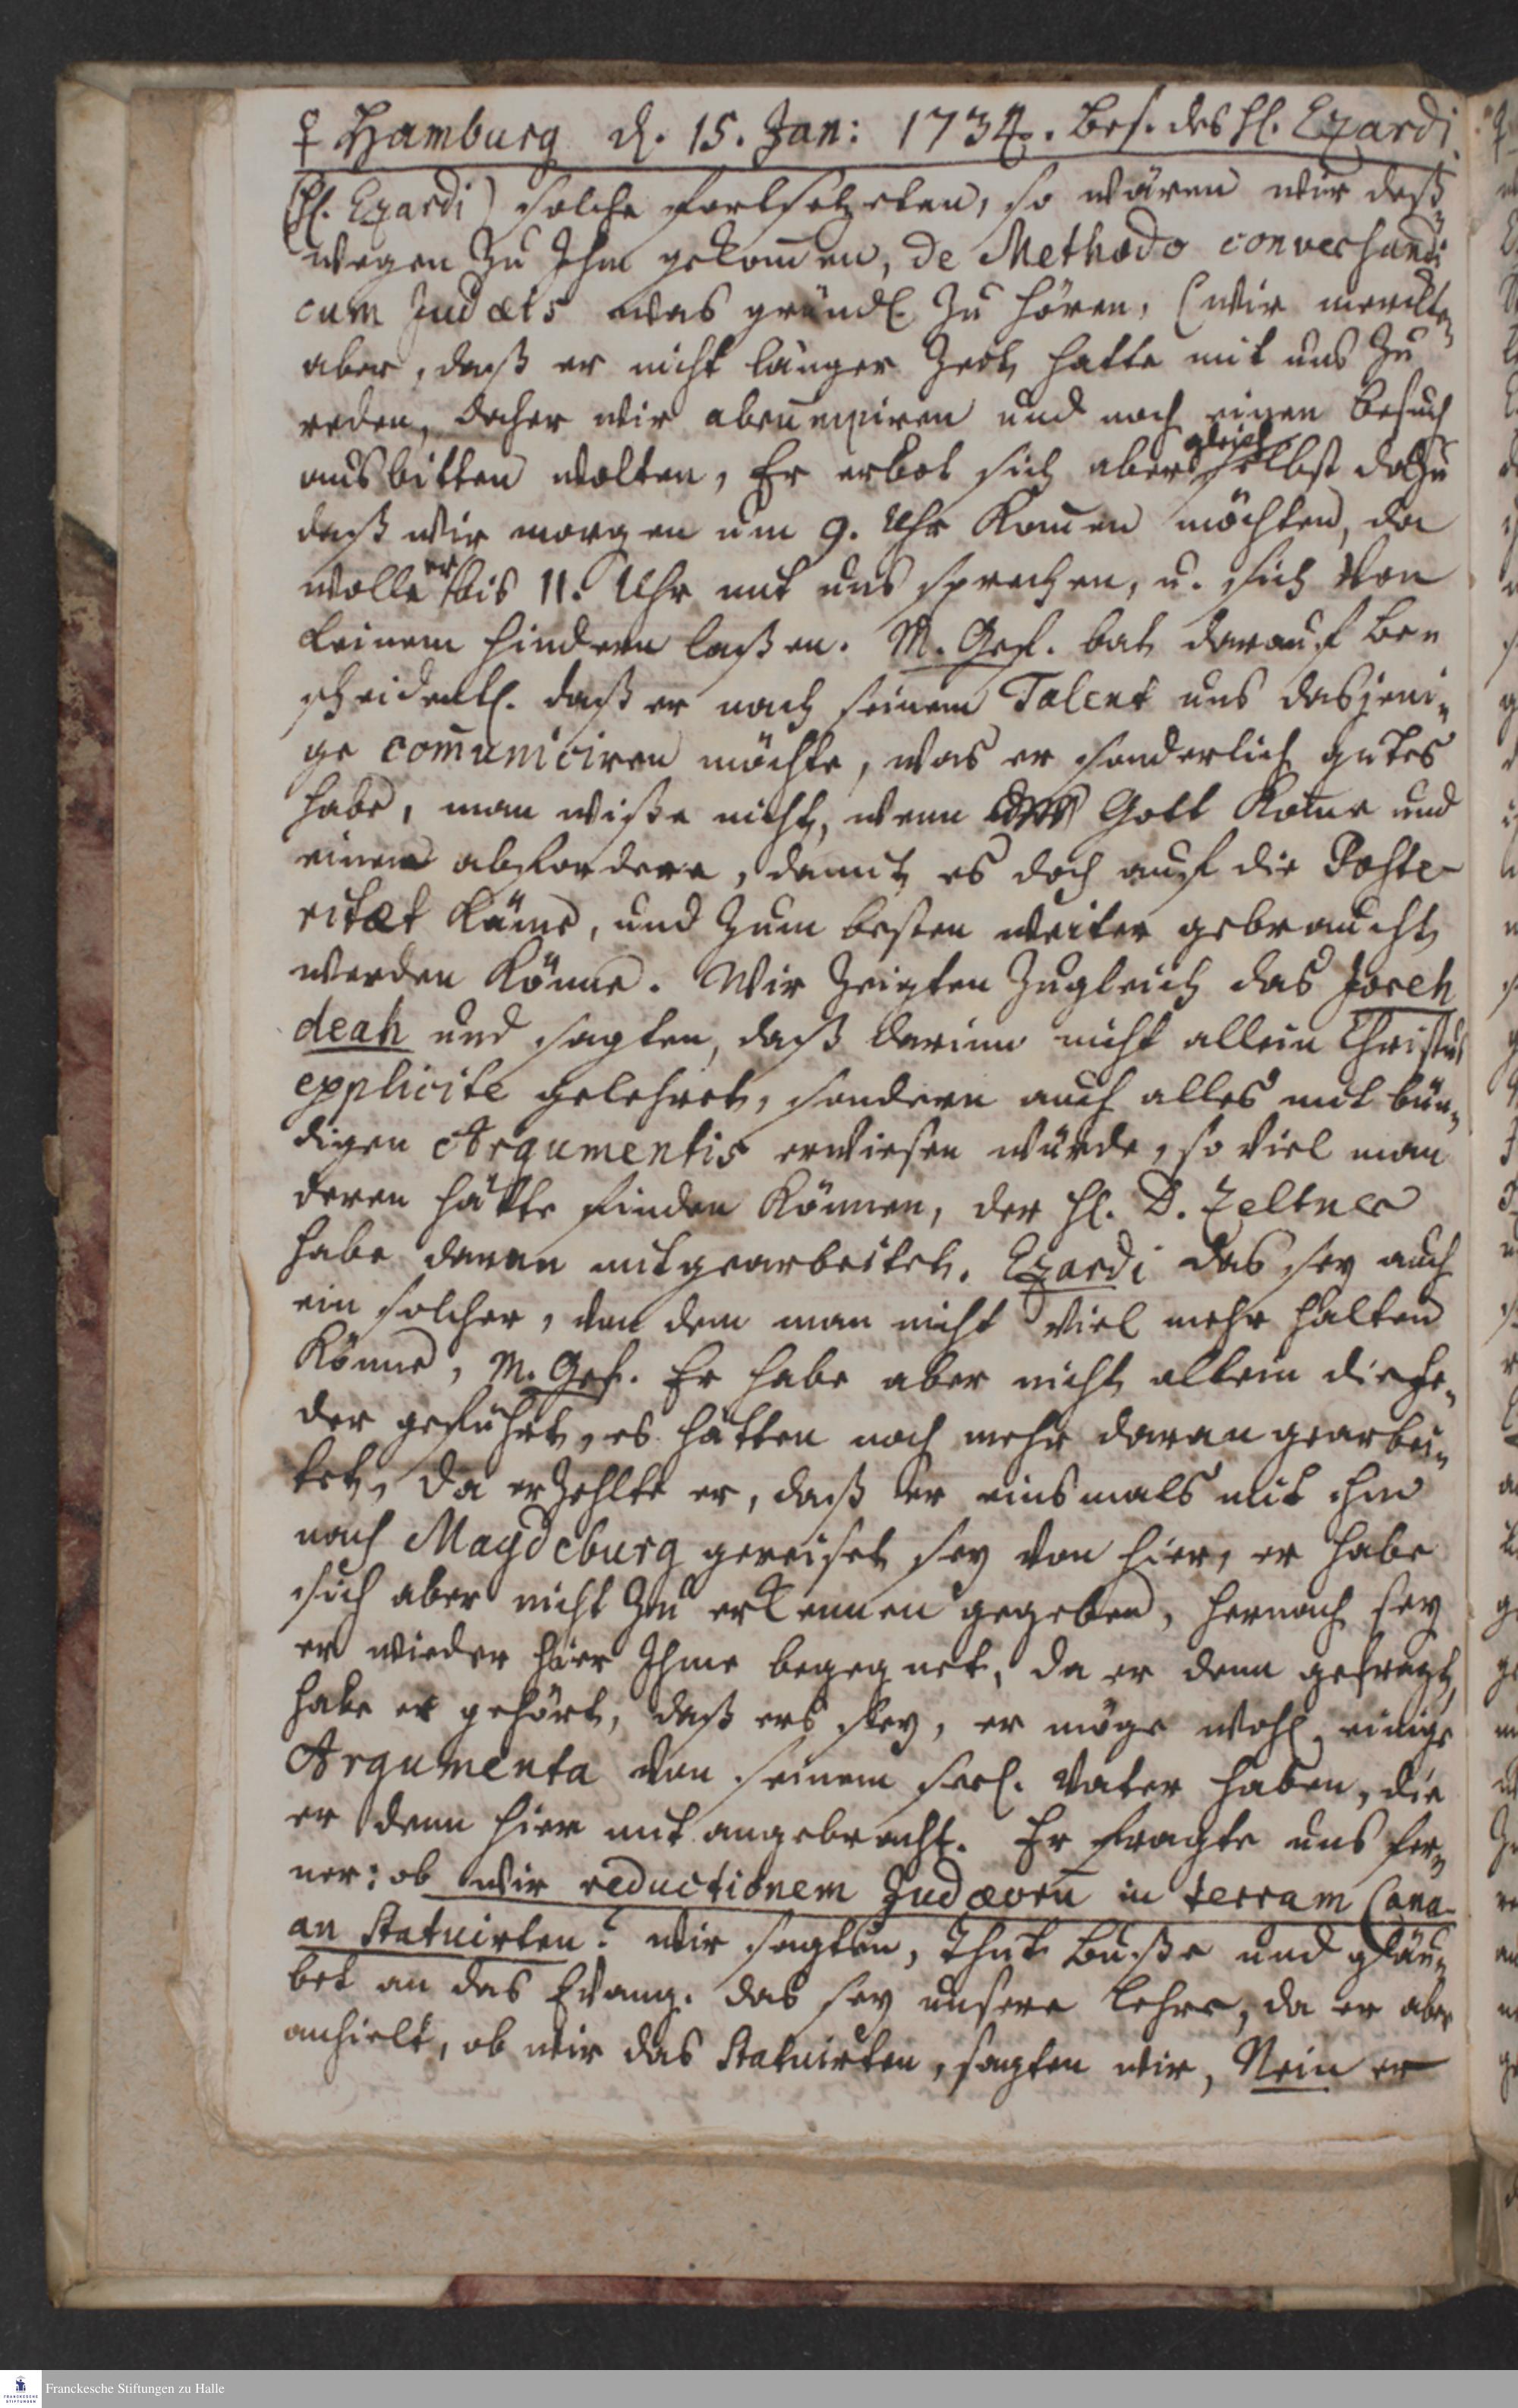 ♀ Hamburg d. 15. Jan: 1734. Bes. des H. Ezardi
(H. Ezardi) solche fortsetzeten, so wären wir deß-
wegen zu Ihm gekom̄en, de Methodo conversandi
cum Judæis was gründl. zu hören, (wir merckten
aber, daß er nicht länger Zeit hatte mit uns zu
reden, daher wir abrumpiren und noch einen Besuch
ausbitten wolten, Er erbot sich aber gleich selbst dazu
daß wir morgen um 9. Uhr kom̄en möchten, da
wolle er bis 11. Uhr mit uns sprechen, u. sich von
keinem hindern laßen. M. Gef. bat darauf be-
scheidentl. daß er nach seinem Talent uns dasjeni-
ge com̄uniciren möchte, was er sonderlich gutes
habe, man wiße nicht, wenn Gott kom̄e und
einen abfordere, damit es doch auf die Poste-
ritæt käme, und zum besten weiter gebraucht
werden könne. Wir zeigten zugleich das Joreh
deah und sagten, daß darinn nicht allein Christus
explicite gelehret, sondern auch alles mit bün-
digen Argumentis erwiesen würde, so viel man
deren hätte finden können, der H. D. Zeltner
habe daran mitgearbeitet. Ezardi das sey auch
ein solcher, von dem man nicht viel mehr halten
könne, M. Gef. Er habe aber nicht allein die Fe-
der geführt, es hätten noch mehr daran gearbei-
tet, da erzehlte er, daß er einsmals mit ihm
nach Magdeburg gereiset sey von hier, er habe
sich aber nicht zu erkennen gegeben, hernach sey
er wieder hier Ihme begegnet, da er denn gefragt,
habe er gehört, daß ers sey, er möge wohl einige
Argumenta von seinem seel. Vater haben, die
er denn hier mit angebracht. Er fragte uns fer-
ner: ob wir reductionem Judæoru̅ in terram Cana-
an statuirten? wir sagten, thut Buße und gläu-
bet an das Evang. das sey unsere Lehre, da er aber
anhielt, ob wir das statuirten, sagten wir, Nein er
Franckesche Stiftungen zu Halle